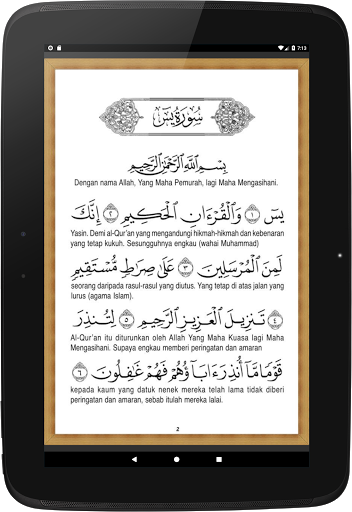 7:13
سُورَةُ يسٓ
بِسْمِ اللَّهِ الرَّحْمَٰنِ الرَّحِيمِ
Dengan nama Allah, Yang Maha Pemurah, lagi Maha Mengasihani.
يسٓ ﴿١﴾ وَالْقُرْءَانِ الْحَكِيمِ ﴿٢﴾ إِنَّكَ
Yasin. Demi al-Qur'an yang mengandungi hikmah-hikmah dan kebenaran
yang tetap kukuh. Sesungguhnya engkau (wahai Muhammad)
لَمِنَ الْمُرْسَلِينَ ﴿٣﴾ عَلَىٰ صِرَاطٍ مُّسْتَقِيمٍ
seorang daripada rasul-rasul yang diutus. Yang tetap di atas jalan yang
lurus (agama Islam).
﴿٤﴾ تَنزِيلَ الْعَزِيزِ الرَّحِيمِ ﴿٥﴾ لِتُنذِرَ
Al-Qur'an itu diturunkan oleh Allah Yang Maha Kuasa lagi Maha
Mengasihani. Supaya engkau memberi peringatan dan amaran
قَوْمًا مَّا أُنذِرَ ءَابَاؤُهُمْ فَهُمْ غَٰفِلُونَ ﴿٦﴾
kepada kaum yang datuk nenek mereka telah lama tidak diberi
peringatan dan amaran, sebab itulah mereka lalai.
2